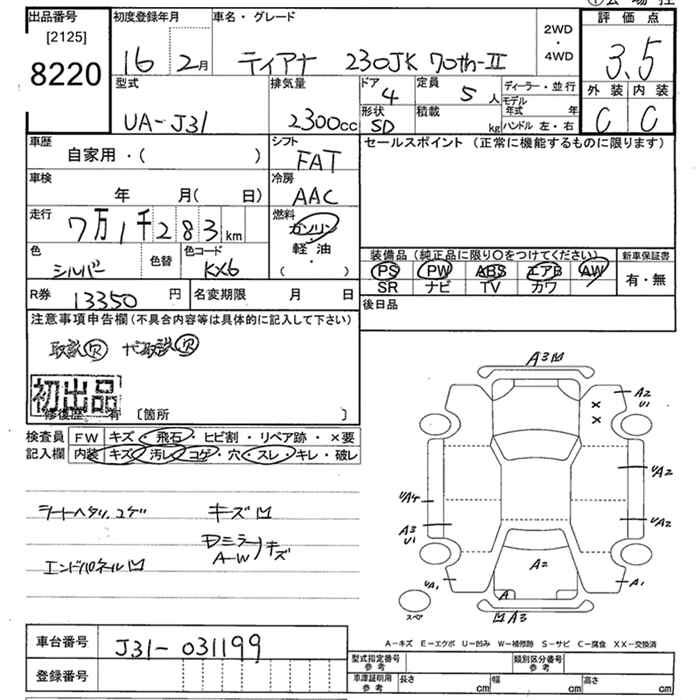 出品番号
[2125]
8220
初度登録年月
16 2月
車名・グレード
ティアナ 230JK 70th-Ⅱ
2WD
・
4WD
評価点
3.5
外装 内装
C C
型式
UA-J31
排気量
2300cc
ドア
4
形状
SD
定員
5人
積載
kg
ディーラー・並行
モデル年式 年
ハンドル 左・右
車歴
自家用・( )
シフト
FAT
セールスポイント(正常に機能するものに限ります)
車検
年 月( 日)
冷房
AAC
走行
7万1千283km
燃料
ガソリン
・
軽油
( )
色
シルバー
色替
色コード
KX6
装備品(純正品に限り○をつけてください)
PS PW ABS エアB AW
SR ナビ TV カワ
新車保証書
有・無
R券
13350円
名変期限 月 日
後日品
注意事項申告欄(不具合内容等は具体的に記入して下さい)
取説欠 ナビ取説欠
初出品
修復歴 有 〔箇所 〕
検査員記入欄
FW キズ・飛石・ヒビ割・リペア跡・×要
内装 キズ・汚レ・コゲ・穴・スレ・キレ・破レ
シートヘタリ、コゲ キズ凹
Dミラー
A-W キズ
エンドパネル凹
A3凹
A2
U1
×
×
UA4
UA2
A3
U1
UA2
A2
UA1
A
A1
スペア
凹A3
A-キズ E-エクボ U-凹み W-補修跡 S-サビ C-腐食 XX-交換済
車台番号
J31-031199
登録番号
型式指定番号参考
類別区分番号参考
車庫証明用参考
長さ cm 幅 cm 高さ cm